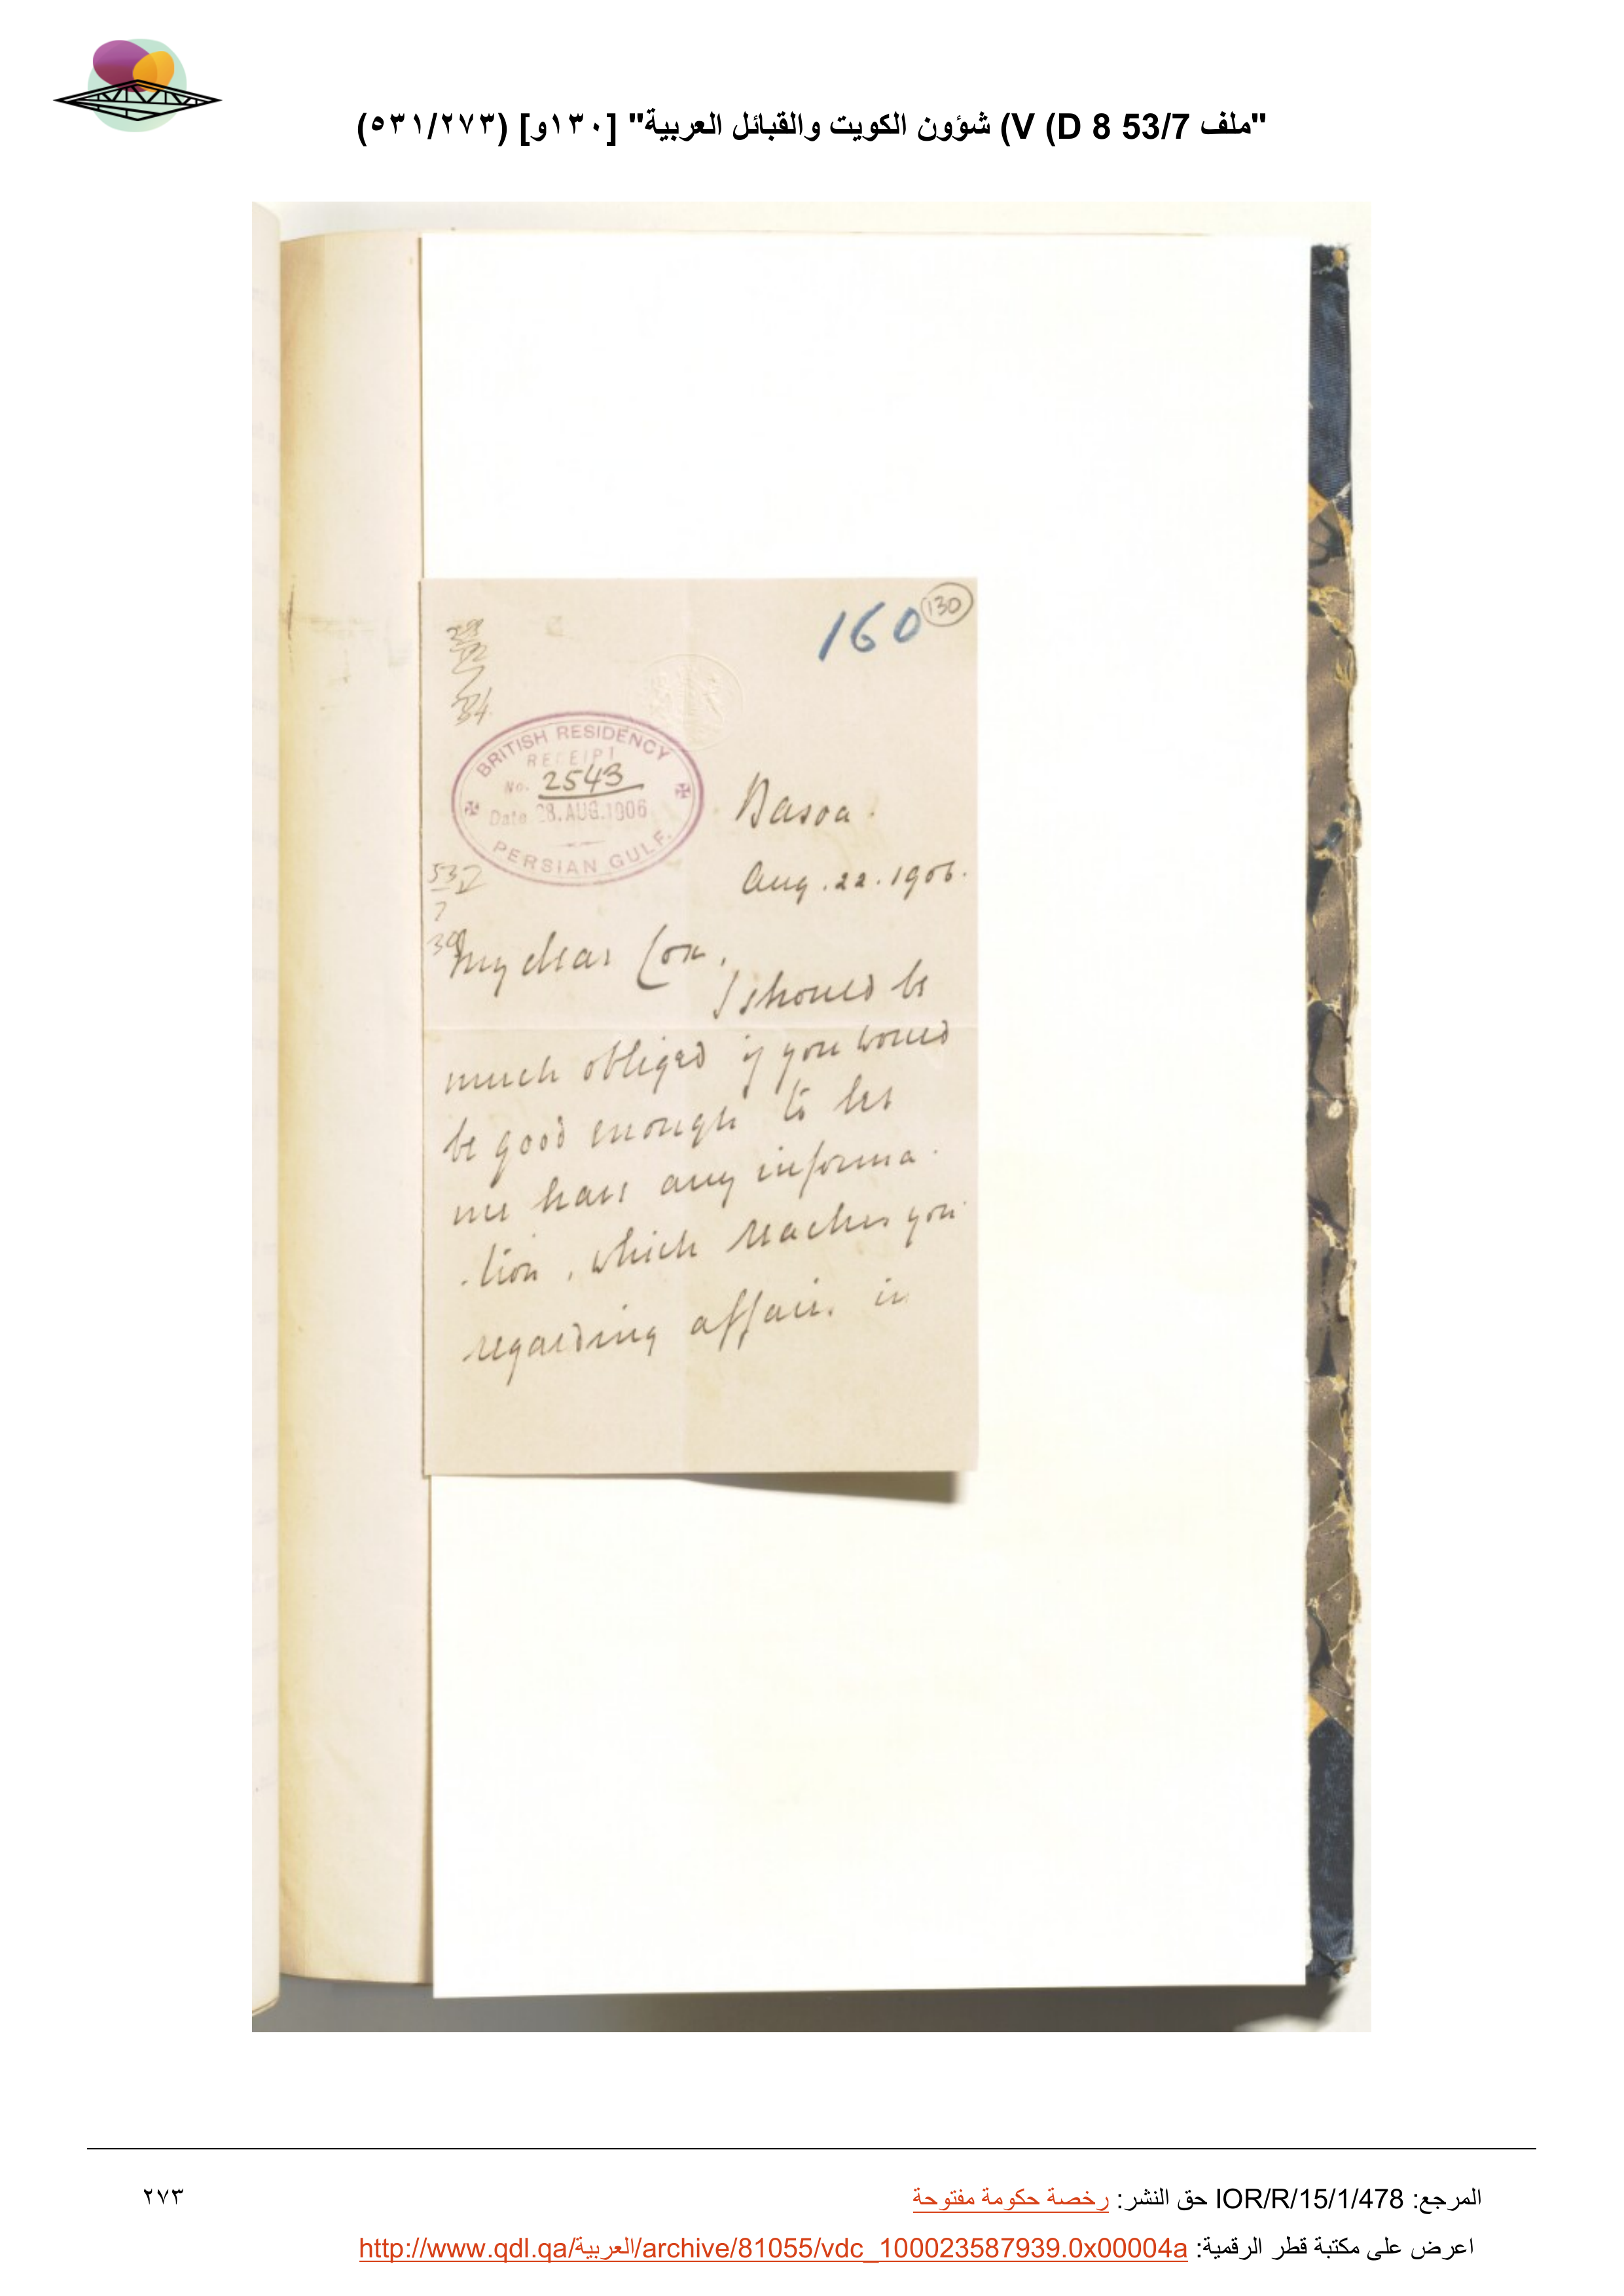 "ملف 53/7 V (D 8) شؤون الكويت والقبائل العربية" [١٣٠و] (٥٣١/٢٧٣)
160
130
BRITISH RESIDENCY
RECEIPT
No. 2543
Date 28.AUG.1906
PERSIAN GULF.
Basra.
Aug. 22. 1906.
53
7
My dear Cox,
I should be
much obliged if you would
be good enough to let
me have any informa-
-tion, which reaches you
regarding affairs in
المرجع: IOR/R/15/1/478 حق النشر: رخصة حكومة مفتوحة
٢٧٣
اعرض على مكتبة قطر الرقمية: http://www.qdl.qa/العربية/archive/81055/vdc_100023587939.0x00004a